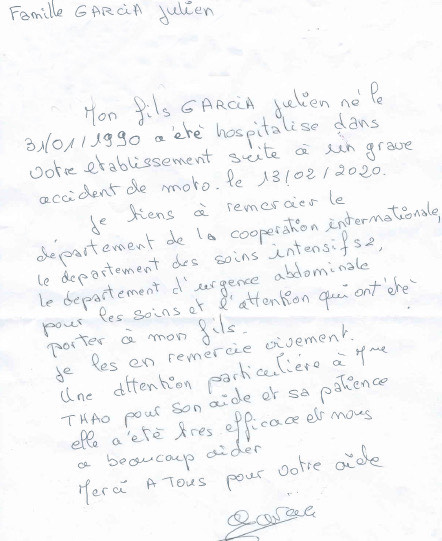 Famille GARCIA Julien
Mon fils GARCIA Julien né le
31/01/1990 a été hospitalise dans
votre etablissement suite à un grave
accident de moto. le 13/02/2020.
Je tiens à remercier le
département de la cooperation internationale,
le departement des soins intensifs 2,
le departement d'urgence abdominale
pour les soins et d'attention qui ont été
porter à mon fils.
Je les en remercie vivement.
Une attention particulière à Mme
THAO pour son aide et sa patience
elle a été tres efficace et nous
a beaucoup aider
Merci A TOUS pour votre aide